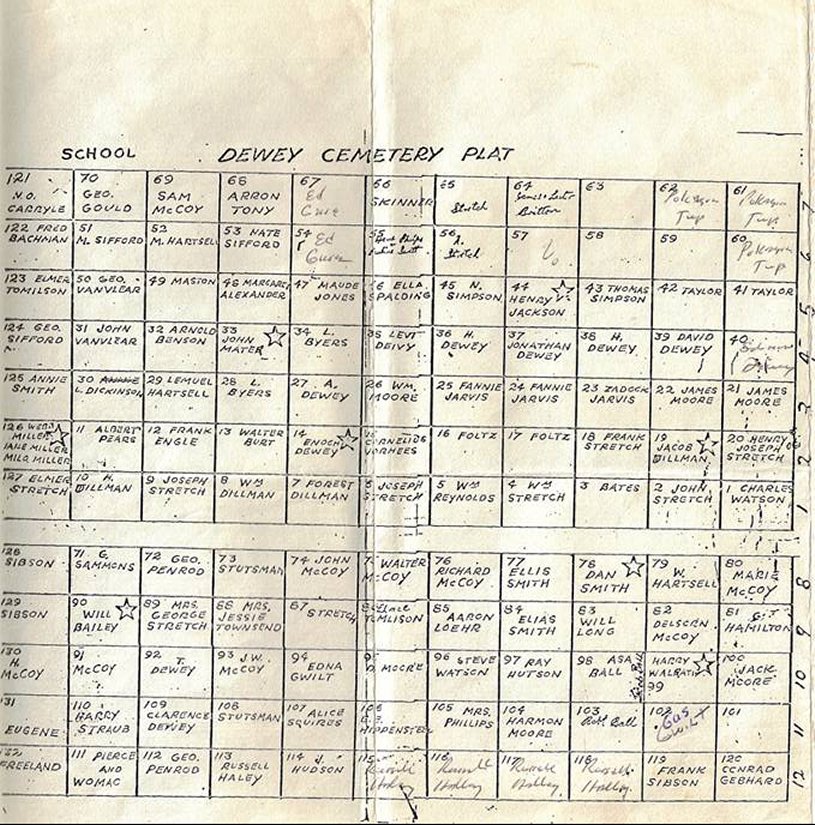 SCHOOL DEWEY CEMETERY PLAT
121 N.O. CARRYLE
70 GEO. GOULD
69 SAM McCOY
68 ARRON TONY
67 Ed
66 SKINNER
65 Stretch
64 Britton
63
62 Twp
61 Twp
7
122 FRED BACHMAN
51 M. SIFFORD
52 M. HARTSELL
53 NATE SIFFORD
54 Ed
55
56 Stretch
57
58
59
60 Twp
6
123 ELMER TOMILSON
50 GEO. VANVLEAR
49 MASTON
48 MARGARET ALEXANDER
47 MAUDE JONES
46 ELLA SPALDING
45 N. SIMPSON
44 HENRY JACKSON
43 THOMAS SIMPSON
42 TAYLOR
41 TAYLOR
5
124 GEO. SIFFORD
31 JOHN VANVLEAR
32 ARNOLD BENSON
33 JOHN MATER
34 L. BYERS
35 LEVI DEIVY
36 H. DEWEY
37 JONATHAN DEWEY
38 H. DEWEY
39 DAVID DEWEY
40 Dewey
4
125 ANNIE SMITH
30 ANNIE L. DICKINSON
29 LEMUEL HARTSELL
28 L. BYERS
27 A. DEWEY
26 WM. MOORE
25 FANNIE JARVIS
24 FANNIE JARVIS
23 ZADOCK JARVIS
22 JAMES MOORE
21 JAMES MOORE
3
126 WEBB MILLER MILLER MILO MILLER
11 ALBERT PEARS
12 FRANK ENGLE
13 WALTER BURT
14 ENOCH DEWEY
15 CORNELIUS VORHEES
16 FOLTZ
17 FOLTZ
18 FRANK STRETCH
19 JACOB DILLMAN
20 HENRY JOSEPH STRETCH
2
127 ELMER STRETCH
10 H. DILLMAN
9 JOSEPH STRETCH
8 WM DILLMAN
7 FOREST DILLMAN
6 JOSEPH STRETCH
5 WM REYNOLDS
4 WM STRETCH
3 BATES
2 JOHN STRETCH
1 CHARLES WATSON
1
128 SIBSON
71 G. SAMMONS
72 GEO. PENROD
73 STUTSMAN
74 JOHN McCOY
75 WALTER McCOY
76 RICHARD McCOY
77 ELLIS SMITH
78 DAN SMITH
79 W. HARTSELL
80 MARIE McCOY
8
129 SIBSON
90 WILL BAILEY
89 MRS. GEORGE STRETCH
88 MRS. JESSIE TOWNSEND
87 STRETCH
TOMLISON
85 AARON LOEHR
84 ELIAS SMITH
83 WILL LONG
82 DELSCRN McCOY
81 G.T. HAMILTON
9
130 H. McCOY
91 McCOY
92 T. DEWEY
93 J.W. McCOY
94 EDNA GWILT
95 MOORE
96 STEVE WATSON
97 RAY HUTSON
98 ASA BALL
HARRY WALRATH 99
100 JACK MOORE
10
131 EUGENE
110 HARRY STRAUB
109 CLARENCE DEWEY
108 STUTSMAN
107 ALICE SQUIRES
106 HIPPENSTEEL
105 MRS. PHILLIPS
104 HARMON MOORE
103 Robt. Ball
102 Gus Gwilt
101
11
132 FREELAND
111 PIERCE AND WOMAC
112 GEO. PENROD
113 RUSSELL HALEY
114 J. HUDSON
115 Russell
116 Russell
117 Russell
118 Russell
119 FRANK SIBSON
120 CONRAD GEBHARD
12